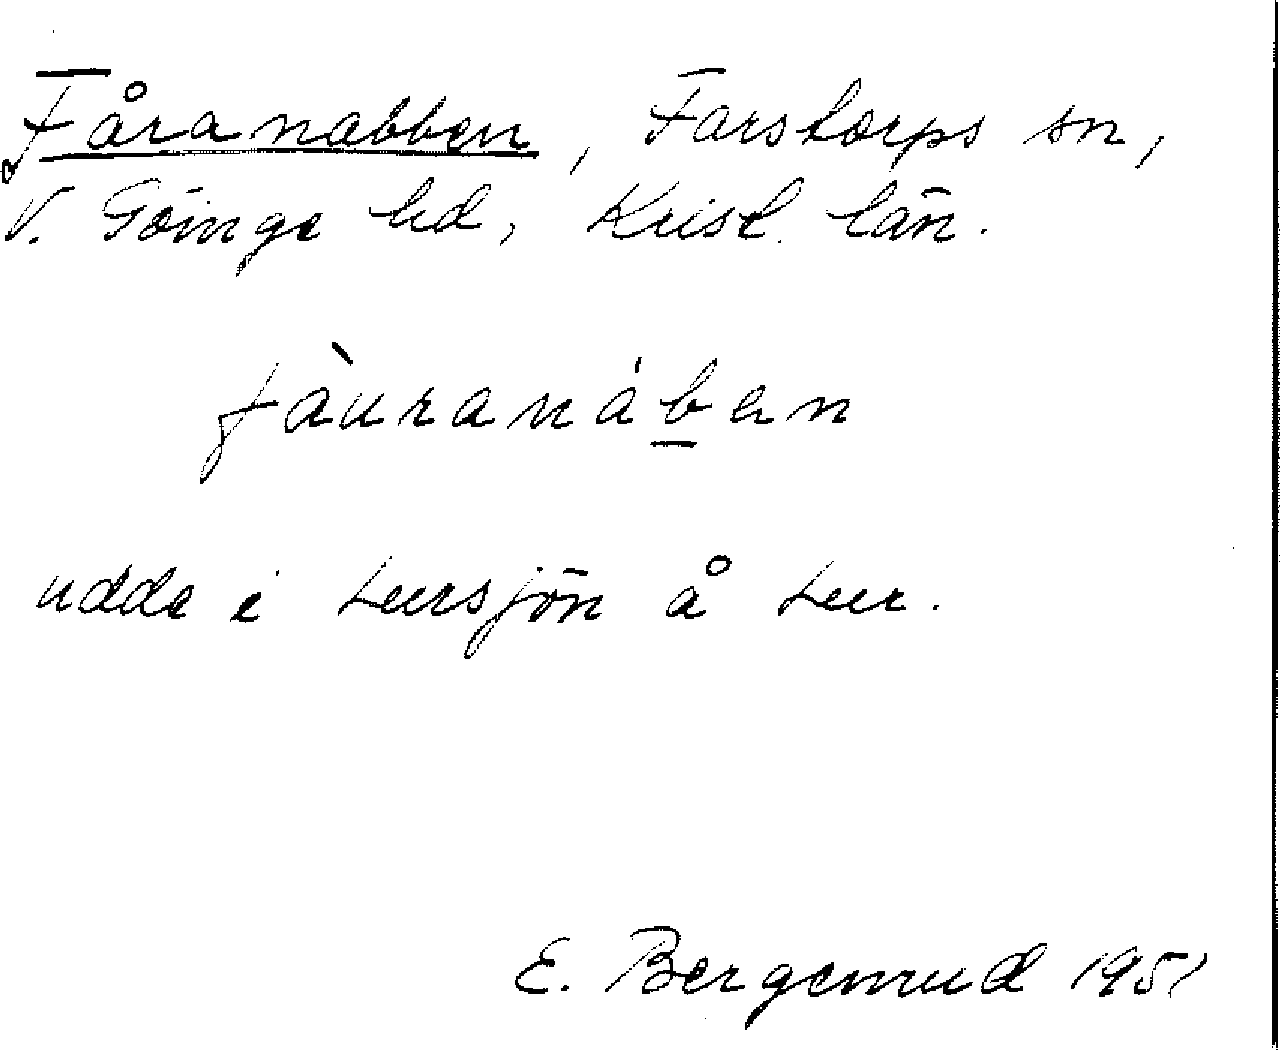 Fåranabben, Farstorps sn,
V. Göinge hd, Krist. län.
fàuranáben
udde i Lursjön å Lur.
E. Bergemrud 1951